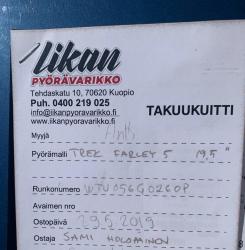 Iikan
PYÖRÄVARIKKO
Tehdaskatu 10, 70620 Kuopio
Puh. 0400 219 025
info@iikanpyoravarikko.fi
www.iikanpyoravarikko.fi
TAKUUKUITTI
Myyjä
Pyörämalli TREK FARLEY 5 19,5"
Runkonumero WTU056G0260P
Avaimen nro
Ostopäivä 29.5.2019
Ostaja SAMI HOLOMINEN